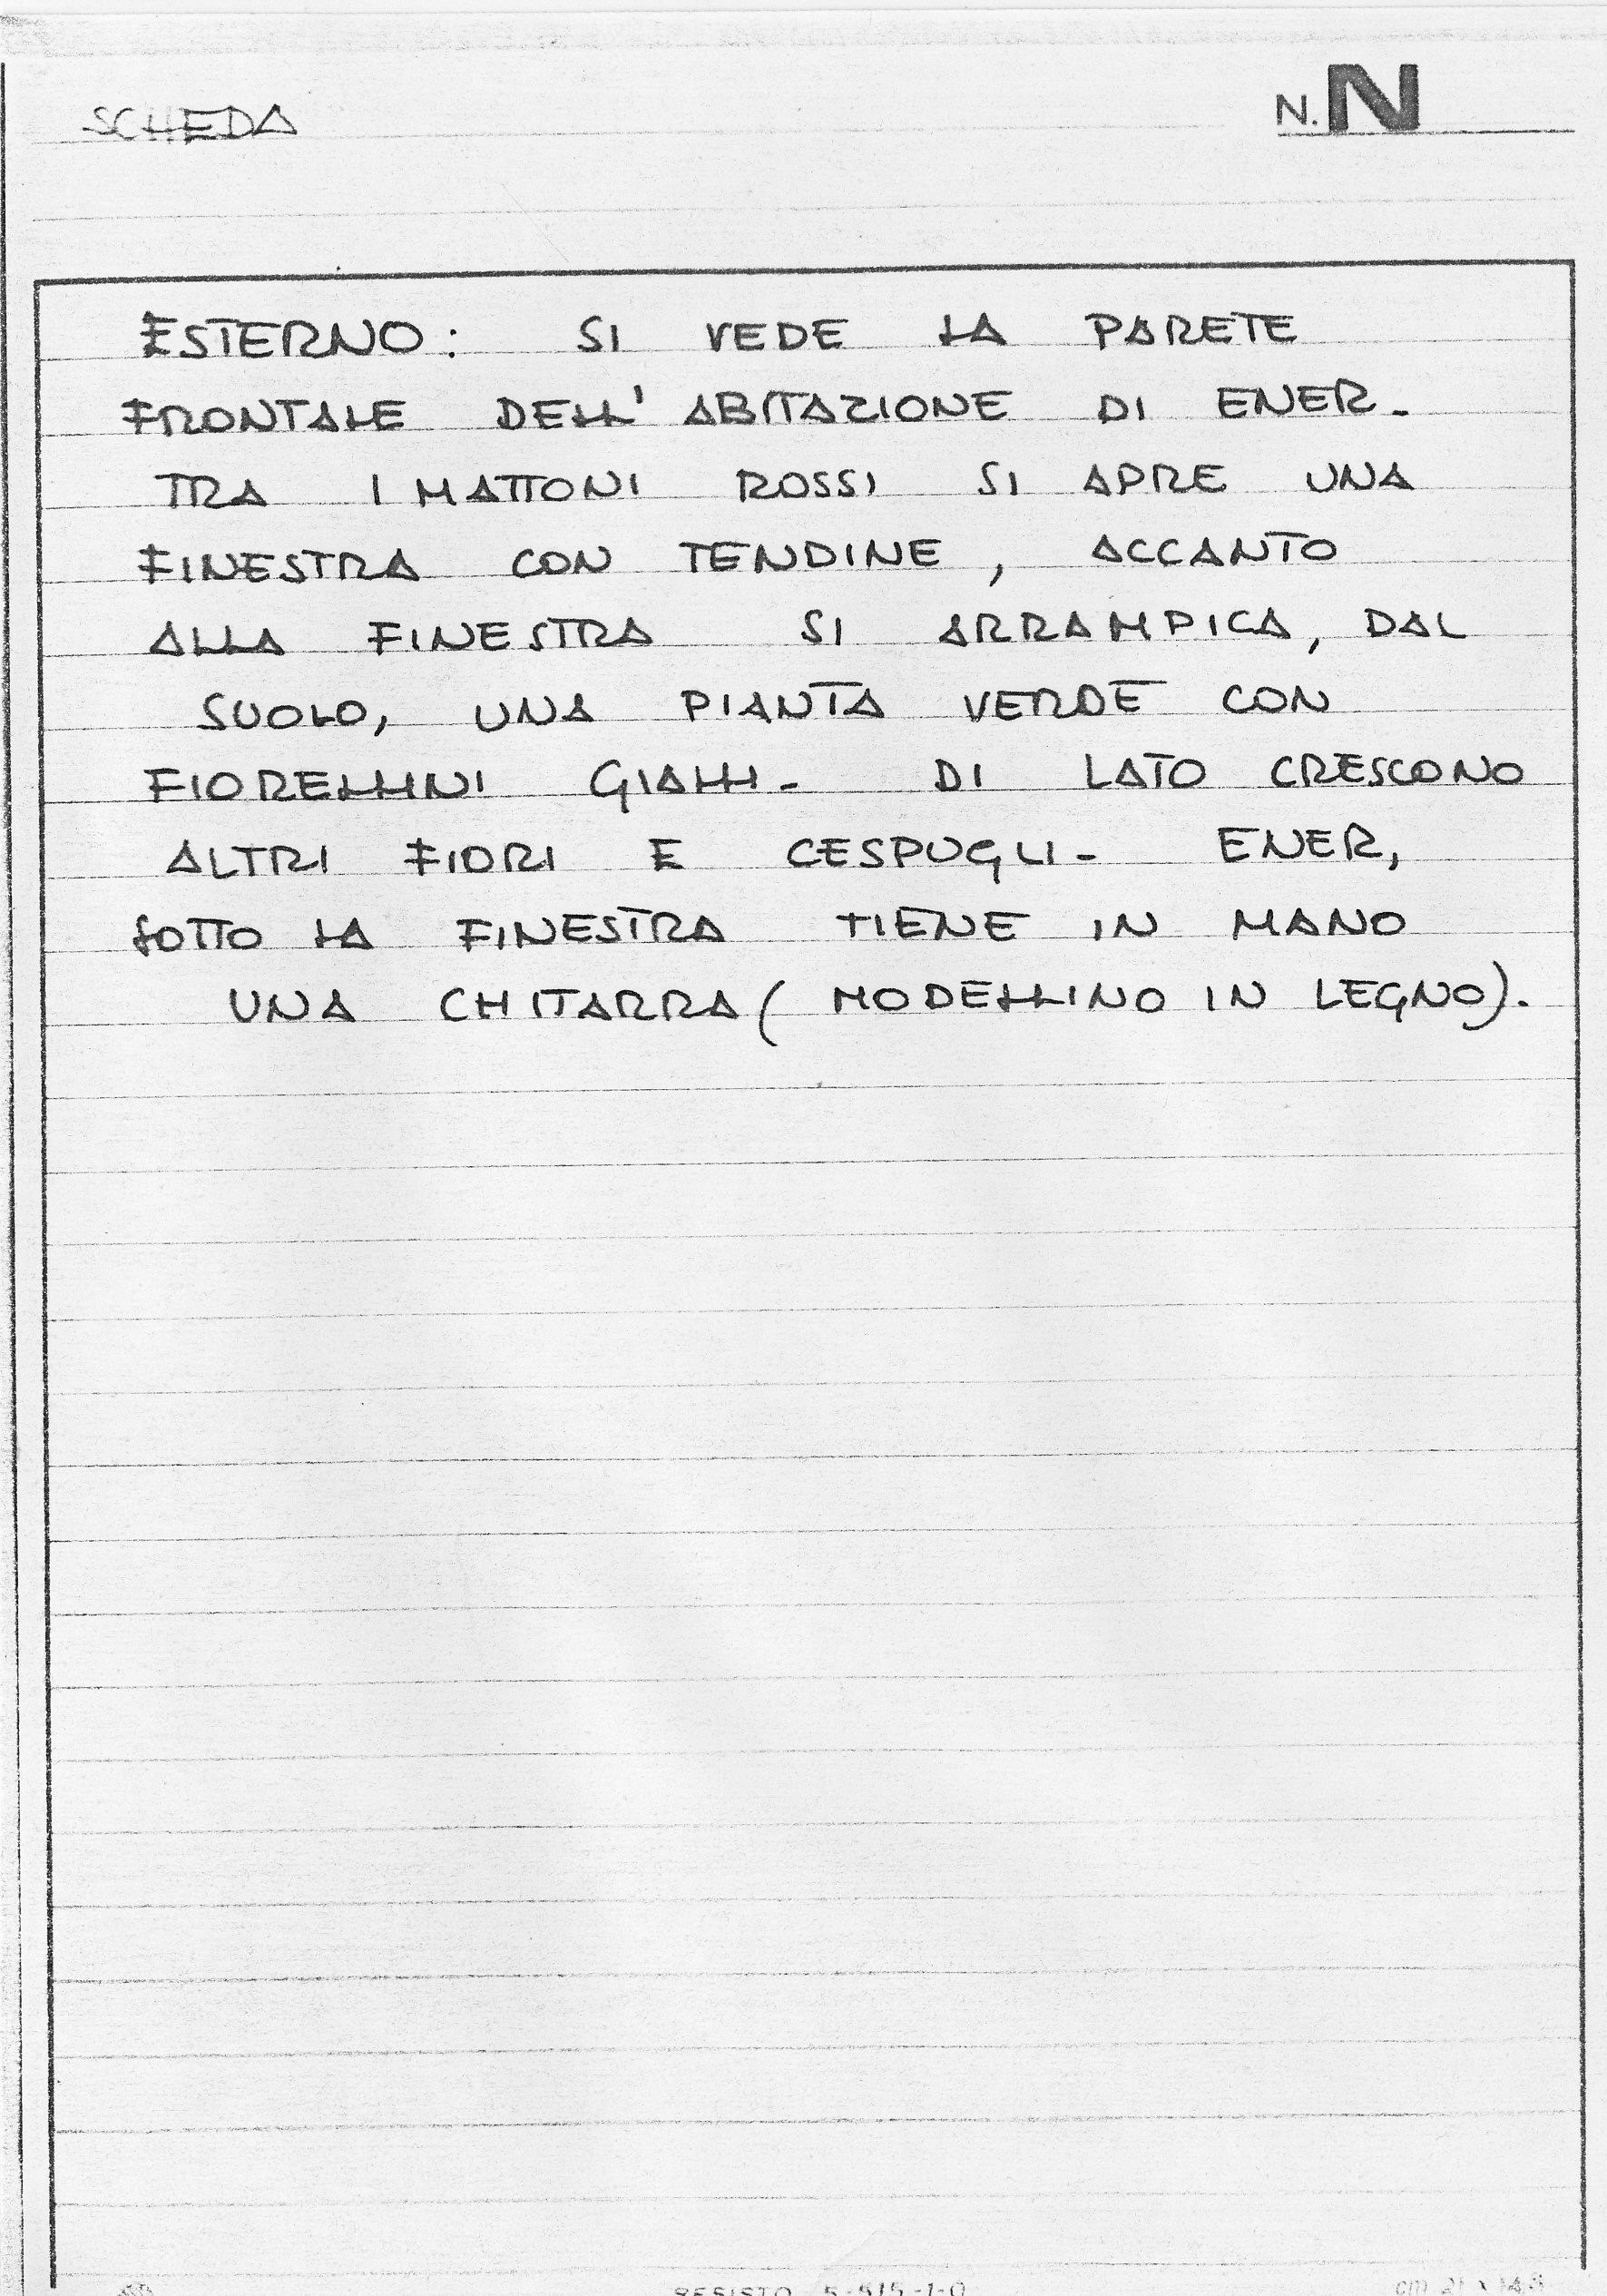 SCHEDA
N. N
ESTERNO: SI VEDE LA PARETE
FRONTALE DELL'ABITAZIONE DI ENER-
TRA I MATTONI ROSSI SI APRE UNA
FINESTRA CON TENDINE, ACCANTO
ALLA FINESTRA SI ARRAMPICA, DAL
SUOLO, UNA PIANTA VERDE CON
FIORELLINI GIALLI- DI LATO CRESCONO
ALTRI FIORI E CESPUGLI- ENER,
SOTTO LA FINESTRA TIENE IN MANO
UNA CHITARRA (MODELLINO IN LEGNO).